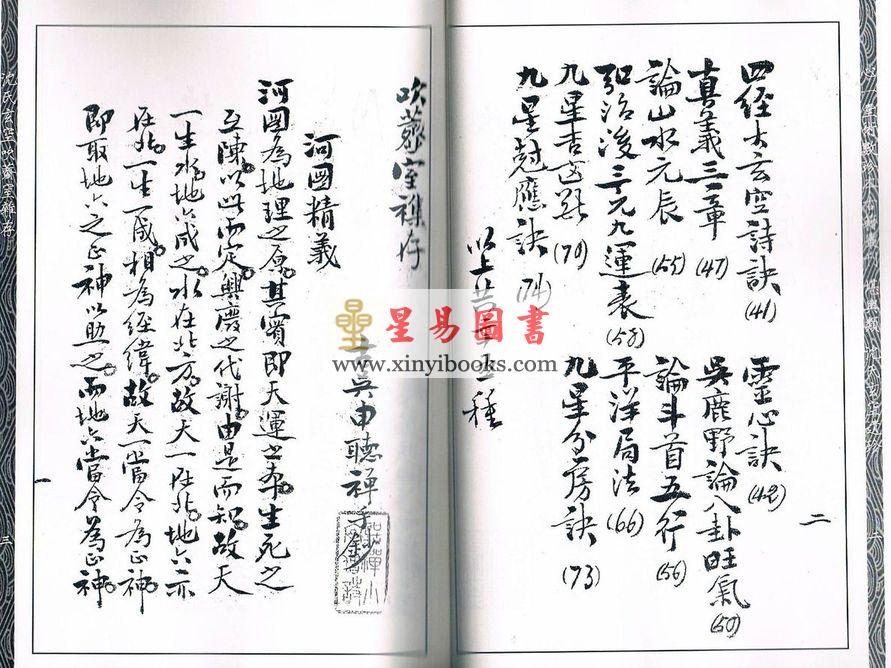 二
四經太玄空詩訣 (41)
靈心訣 (42)
真義三章 (47)
吳鹿野論八卦旺氣 (50)
論山水元辰 (55)
論斗首五行 (56)
弘治後三元九運表 (58)
平洋局法 (66)
九星吉凶斷 (70)
九星分房訣 (73)
九星尅應訣 (74)
以上共
種
吹虀室雜存
吳由聽禪手鈔
河圖精義
河圖為地理之原。其實即天運之本。生死之
互陳。以此而定。興廢之代謝。由是而知。故天
一生水。地六成之。水在北方。故天一在北。地六亦
在北。一生一成。相為經緯。故天一當令為正神。
即取地六之正神以助之。而地六當令為正神。
一
沈氏玄空吹虀室雜存
三
星易圖書
www.xinyibooks.com